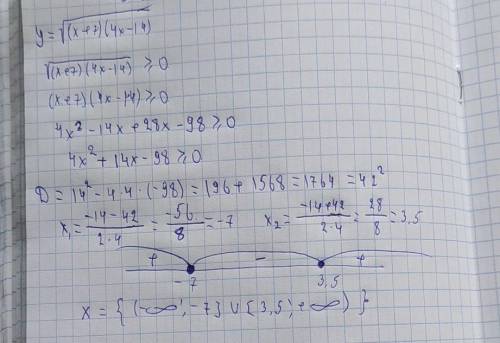 y = √(x+7)(4x-14)
√(x+7)(4x-14) ≥ 0
(x+7)(4x-14) ≥ 0
4x² - 14x + 28x - 98 ≥ 0
4x² + 14x - 98 ≥ 0
D = 14² - 4·4·(-98) = 196 + 1568 = 1764 = 42²
x₁ = (-14-42)/(2·4) = (-56)/8 = -7 x₂ = (-14+42)/(2·4) = 28/8 = 3,5
+ - +
-7 3,5
x = { (-∞; -7] ∪ [3,5; +∞) }